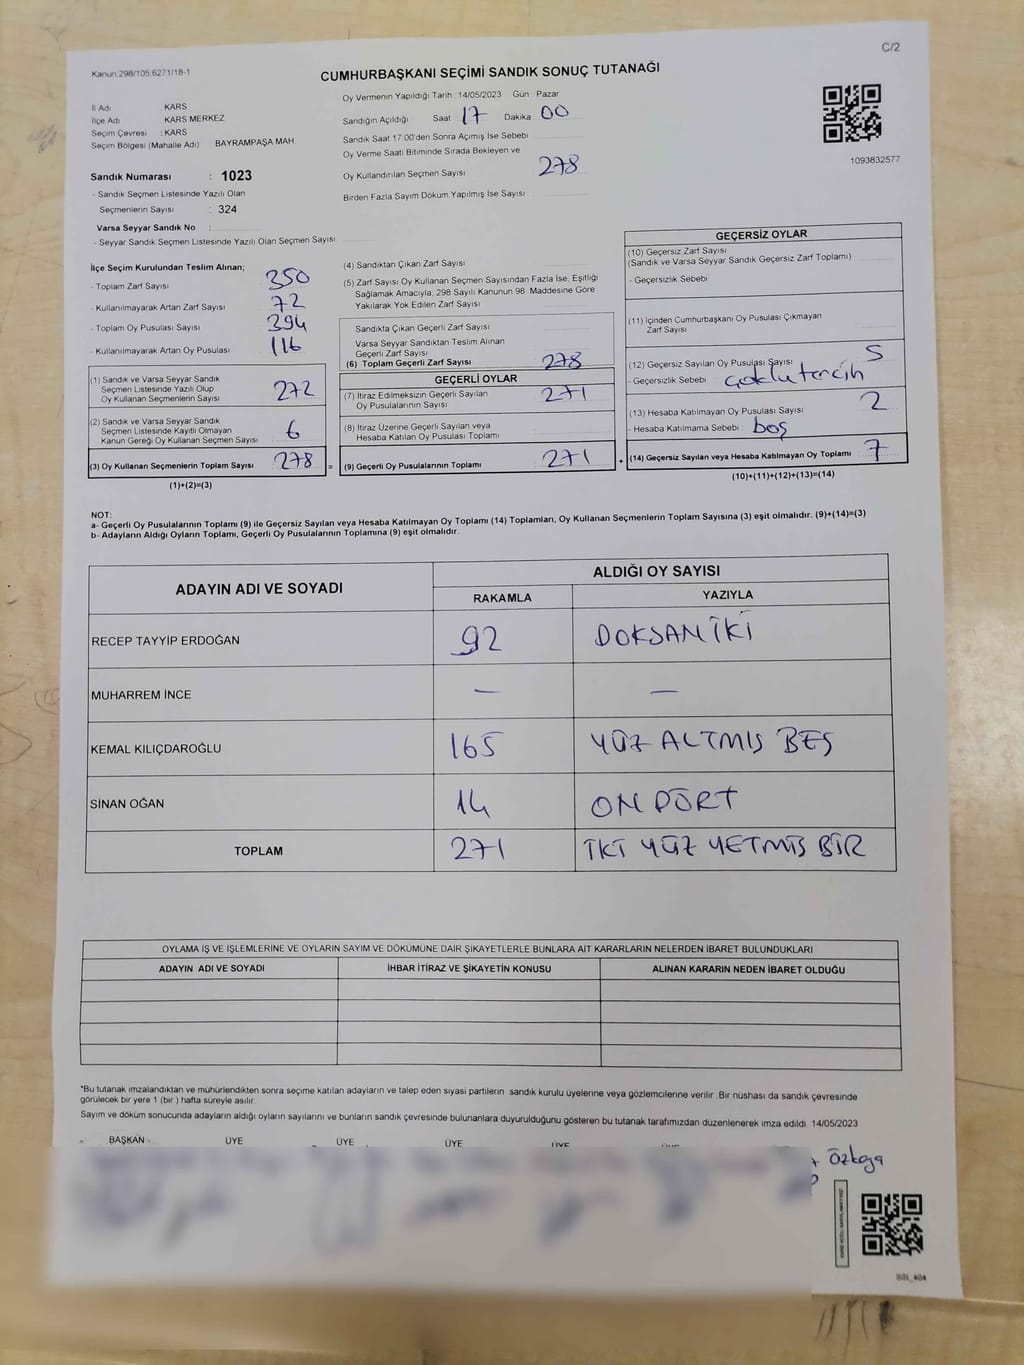 C/2
Kanun:298/105;6271/18-1
CUMHURBAŞKANI SEÇİMİ SANDIK SONUÇ TUTANAĞI
İl Adı KARS
İlçe Adı KARS MERKEZ
Seçim Çevresi : KARS
Seçim Bölgesi (Mahalle Adı) BAYRAMPAŞA MAH.
Sandık Numarası : 1023
- Sandık Seçmen Listesinde Yazılı Olan
Seçmenlerin Sayısı : 324
Varsa Seyyar Sandık No :
- Seyyar Sandık Seçmen Listesinde Yazılı Olan Seçmen Sayısı
Oy Vermenin Yapıldığı Tarih :14/05/2023 Gün : Pazar
Sandığın Açıldığı Saat 17 Dakika 00
Sandık Saat 17:00'den Sonra Açılmış İse Sebebi
Oy Verme Saati Bitiminde Sırada Bekleyen ve
Oy Kullandırılan Seçmen Sayısı 278
Birden Fazla Sayım Döküm Yapılmış İse Sayısı
1093832577
İlçe Seçim Kurulundan Teslim Alınan;
- Toplam Zarf Sayısı 350
- Kullanılmayarak Artan Zarf Sayısı 72
- Toplam Oy Pusulası Sayısı 394
- Kullanılmayarak Artan Oy Pusulası 116
(1) Sandık ve Varsa Seyyar Sandık
Seçmen Listesinde Yazılı Olup
Oy Kullanan Seçmenlerin Sayısı 272
(2) Sandık ve Varsa Seyyar Sandık
Seçmen Listesinde Kayıtlı Olmayan
Kanun Gereği Oy Kullanan Seçmen Sayısı 6
(3) Oy Kullanan Seçmenlerin Toplam Sayısı 278
=
(1)+(2)=(3)
(4) Sandıktan Çıkan Zarf Sayısı
(5) Zarf Sayısı Oy Kullanan Seçmen Sayısından Fazla İse, Eşitliği
Sağlamak Amacıyla; 298 Sayılı Kanunun 98. Maddesine Göre
Yakılarak Yok Edilen Zarf Sayısı
Sandıkta Çıkan Geçerli Zarf Sayısı
Varsa Seyyar Sandıktan Teslim Alınan
Geçerli Zarf Sayısı
(6) Toplam Geçerli Zarf Sayısı 278
GEÇERLİ OYLAR
(7) İtiraz Edilmeksizin Geçerli Sayılan
Oy Pusulalarının Sayısı 271
(8) İtiraz Üzerine Geçerli Sayılan veya
Hesaba Katılan Oy Pusulası Toplamı
(9) Geçerli Oy Pusulalarının Toplamı 271
+
GEÇERSİZ OYLAR
(10) Geçersiz Zarf Sayısı
(Sandık ve Varsa Seyyar Sandık Geçersiz Zarf Toplamı)
- Geçersizlik Sebebi
(11) İçinden Cumhurbaşkanı Oy Pusulası Çıkmayan
Zarf Sayısı
(12) Geçersiz Sayılan Oy Pusulası Sayısı 5
- Geçersizlik Sebebi çoklu tercih
(13) Hesaba Katılmayan Oy Pusulası Sayısı 2
- Hesaba Katılmama Sebebi : boş
(14) Geçersiz Sayılan veya Hesaba Katılmayan Oy Toplamı 7
(10)+(11)+(12)+(13)=(14)
NOT:
a- Geçerli Oy Pusulalarının Toplamı (9) ile Geçersiz Sayılan veya Hesaba Katılmayan Oy Toplamı (14) Toplamları, Oy Kullanan Seçmenlerin Toplam Sayısına (3) eşit olmalıdır. (9)+(14)=(3)
b- Adayların Aldığı Oyların Toplamı, Geçerli Oy Pusulalarının Toplamına (9) eşit olmalıdır.
ADAYIN ADI VE SOYADI
ALDIĞI OY SAYISI
RAKAMLA YAZIYLA
RECEP TAYYİP ERDOĞAN 92 DOKSAN İKİ
MUHARREM İNCE — —
KEMAL KILIÇDAROĞLU 165 YÜZ ALTMIŞ BEŞ
SİNAN OĞAN 14 ON DÖRT
TOPLAM 271 İKİ YÜZ YETMİŞ BİR
OYLAMA İŞ VE İŞLEMLERİNE VE OYLARIN SAYIM VE DÖKÜMÜNE DAİR ŞİKAYETLERLE BUNLARA AİT KARARLARIN NELERDEN İBARET BULUNDUKLARI
ADAYIN ADI VE SOYADI İHBAR İTİRAZ VE ŞİKAYETİN KONUSU ALINAN KARARIN NEDEN İBARET OLDUĞU
*Bu tutanak imzalandıktan ve mühürlendikten sonra seçime katılan adayların ve talep eden siyasi partilerin sandık kurulu üyelerine veya gözlemcilerine verilir. Bir nüshası da sandık çevresinde
görülecek bir yere 1 (bir ) hafta süreyle asılır.
Sayım ve döküm sonucunda adayların aldığı oyların sayılarını ve bunların sandık çevresinde bulunanlara duyurulduğunu gösteren bu tutanak tarafımızdan düzenlenerek imza edildi. 14/05/2023
BAŞKAN ÜYE ÜYE ÜYE ÜYE ÜYE